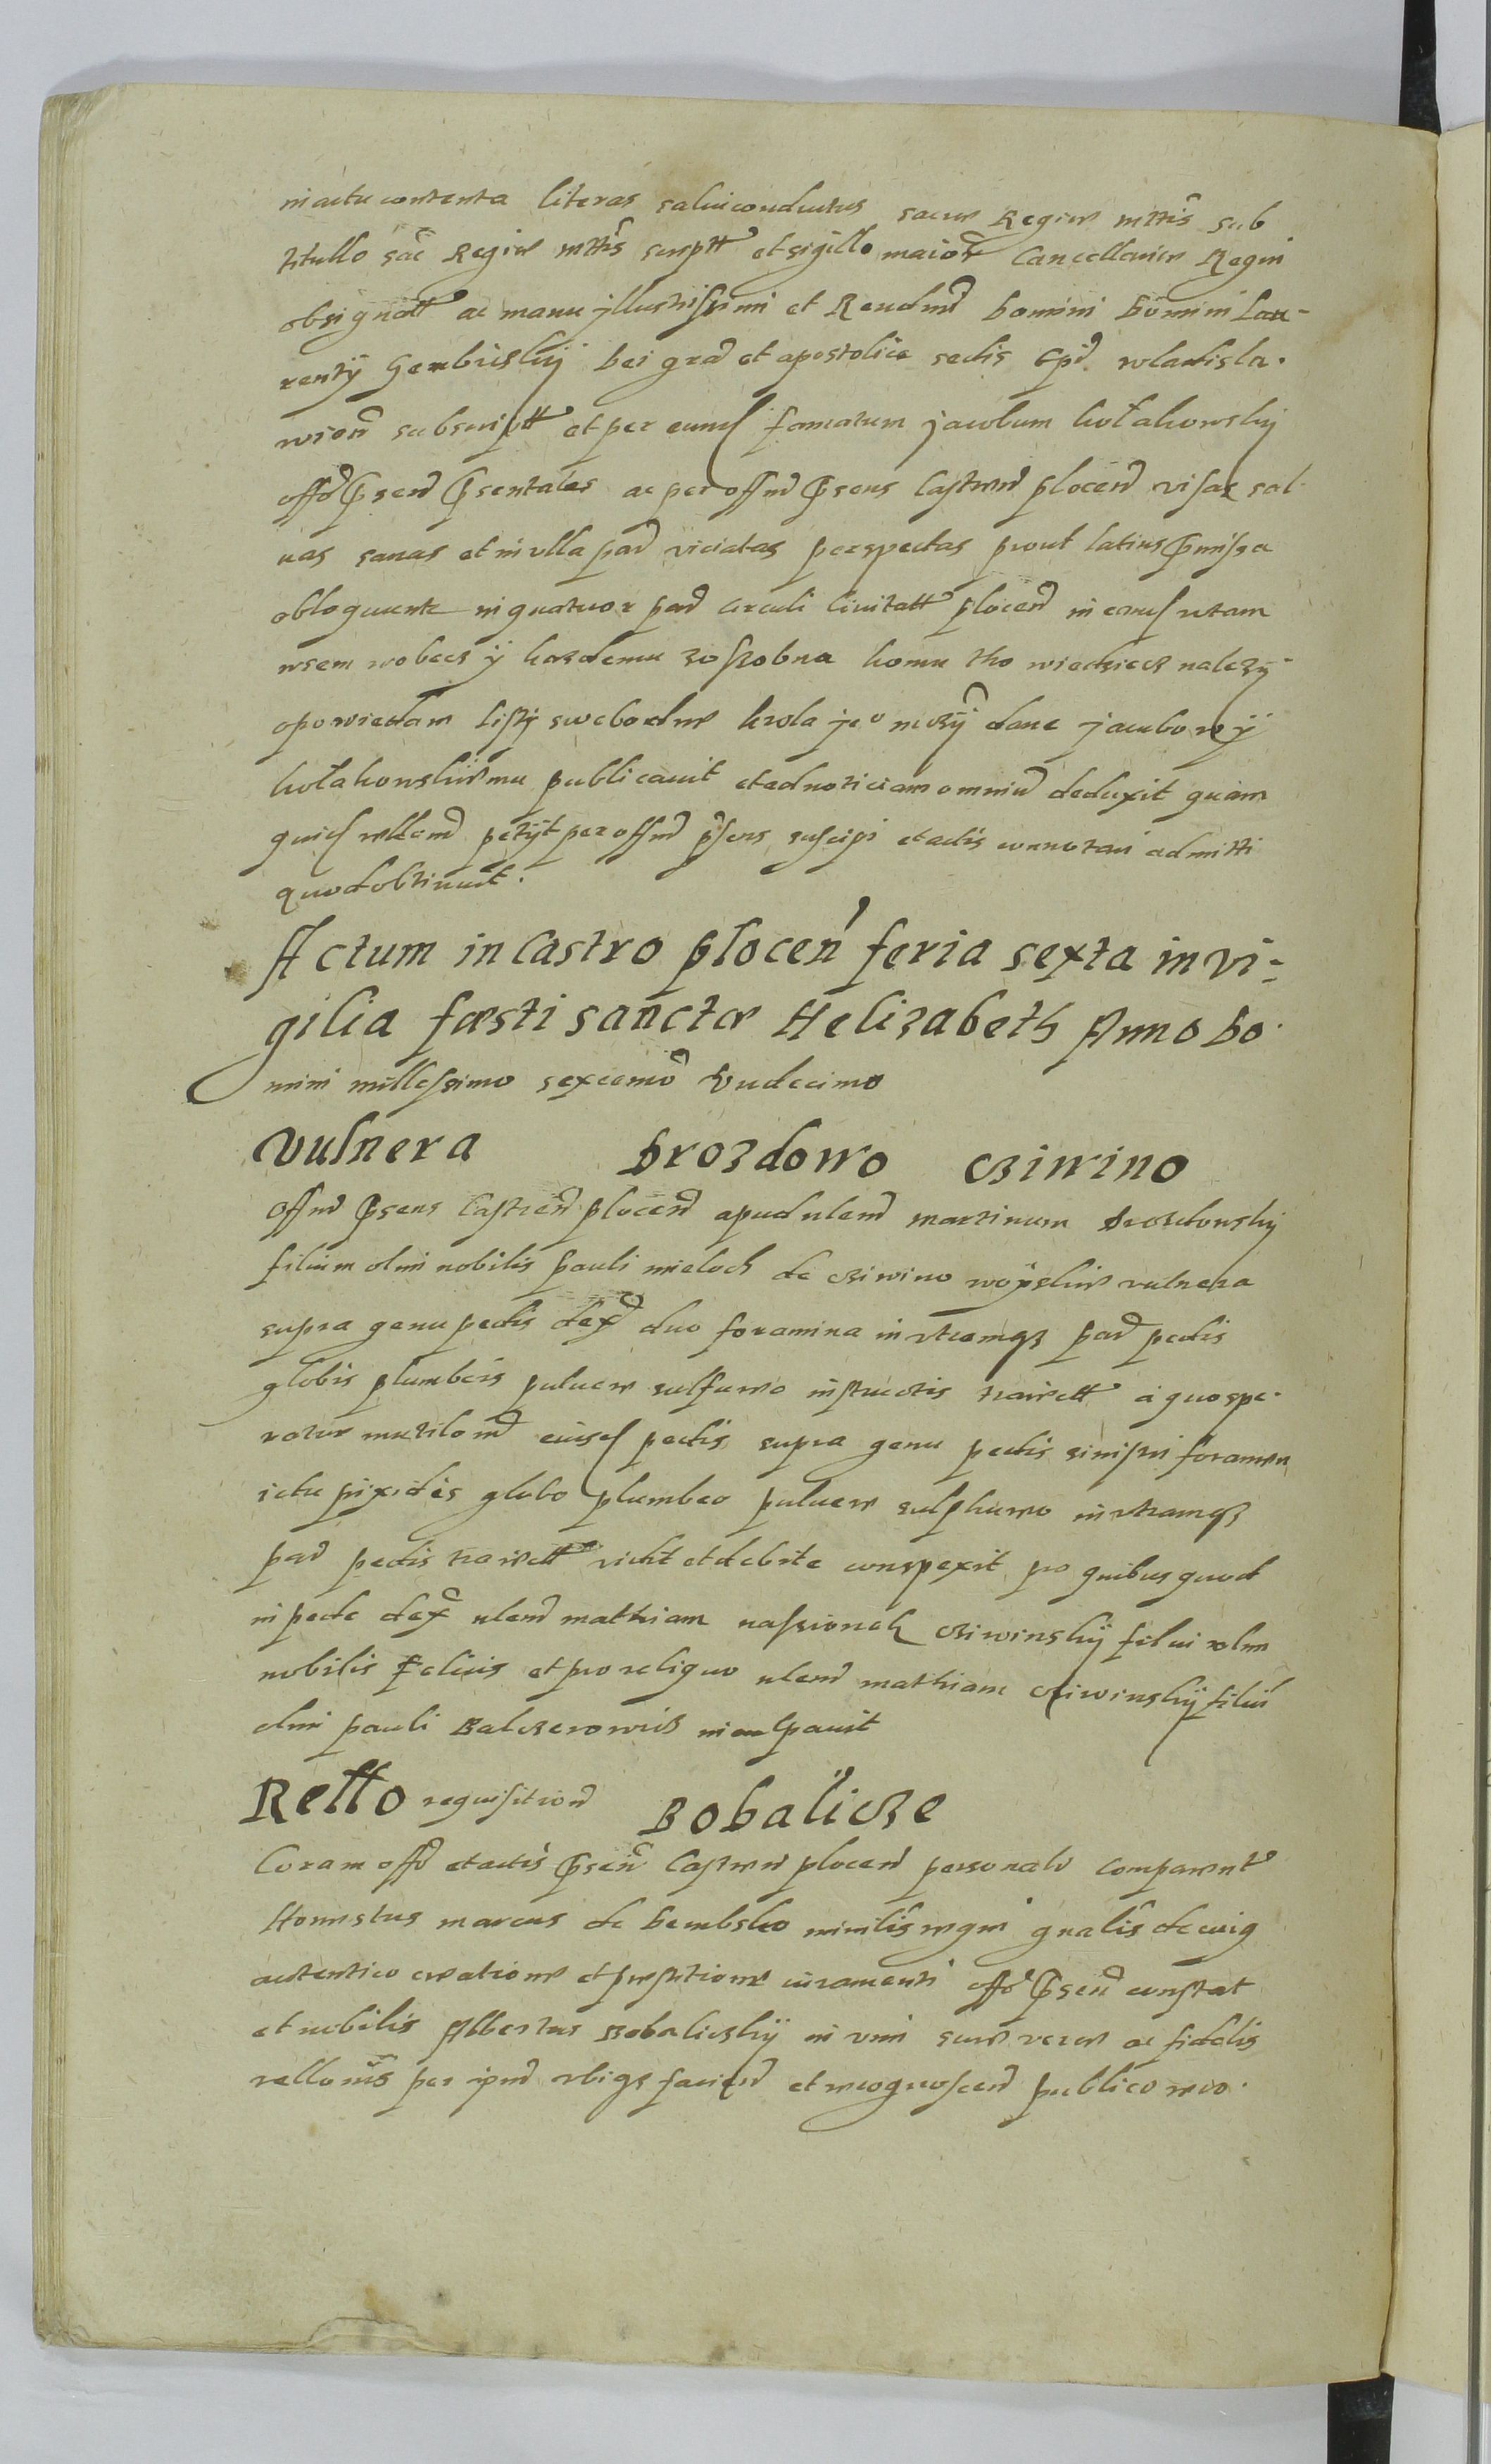 in actu contenta literas saluiconductus sacrae Regiae mttis sub
titullo sac Regiae mttis scriptt et sigillo maior Cancellariae Regni
obsignatt ac manu jllustrissimi et Reudmi Domini Domini Lau-
rentÿ Gembiczkÿ Dei gra et apostolice sedis Epi wladisla-
wien subscriptt et per eund famatum jacobum kołakowskÿ
offo psen psentatas ac per offm psens Castren plocen visas sal-
uas sanas et in vlla par viciatas perspectas prout latius pmissa
obloquunt in quatuor par circuli Ciuitatt plocen in eam vitam
wsem wobecz ÿ kazdemu zossobna komu tho wiedziecz nalezÿ
opowiedam listÿ swebodne krola jeo mczÿ dane jacubowÿ
kołakowskiemu publicauit et ad noticiam omniu deduxit quam
quid rellonem petÿt per offm psens suscipi et actis connotari admitti
quod obtinuit.
Actum in Castro plocen feria sexta in vi-
gilia fæsti sanctæ Helizabeth Anno Do-
mini millessimo sexcenmo Vndecimo
Vulnera Drozdowo cziwino
Offm psens Castren plocen apud nlem martinum Drozdowskÿ
filium olim nobilis pauli mieloch de cziwino woÿskie vulnera
supra genu pedis dex duo foramina in vtramqz par pedis
globis plumbeis puluere sulfureo instructis traiectt a quo spe-
ratur mutilom eiusd pedis supra genu pedis sinistri foramen
ictu pixidis globo plumbeo puluere sulphureo in vtramqz
par pedis traiectt vidit et debite conspexit pro quibus quod
in pede dex nlem mathiam nassionek cziwinskÿ filiu olim
nobilis Felicis et pro reliquo nlem mathiam cziwinskÿ filiu
olim pauli Balczerowicz inculpauit
Retto requisition Bobalicze
Coram offo et actis psen Castren plocen personalr comparent
Honestus marcus de Dembsko ministlis regni gnalis de cuiq
autentico creatione et prestitione iuramenti offo psen constat
et nobilis Albertus Bobaliczkÿ in vim suae verae ac fidelis
rellonis per ipm vbiqz facien et recognoscen publico reco-